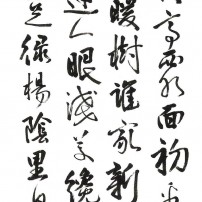 亭西水面初平
暖樹誰家新
迷人眼淺草纔
足綠楊陰里白